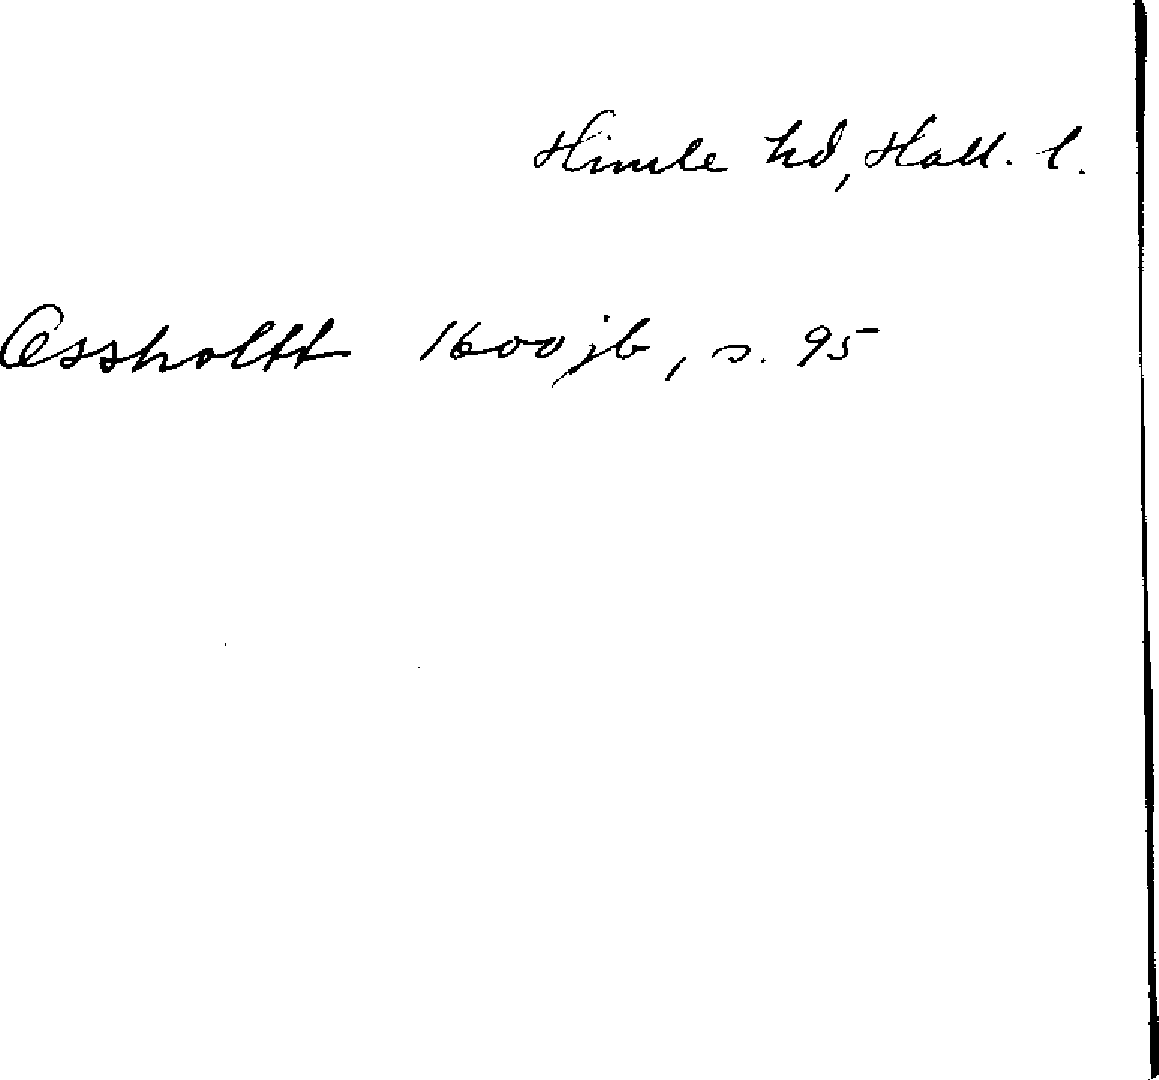 Himle hd, Hall. l.
Ossholtt 1600 jb, s. 95